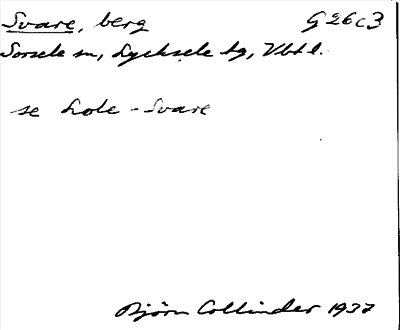 Svare, berg G 26 c 3
Sorsele sn, Lycksele tg, Vbt l.
se Lole-Svare
Björn Collinder 1937